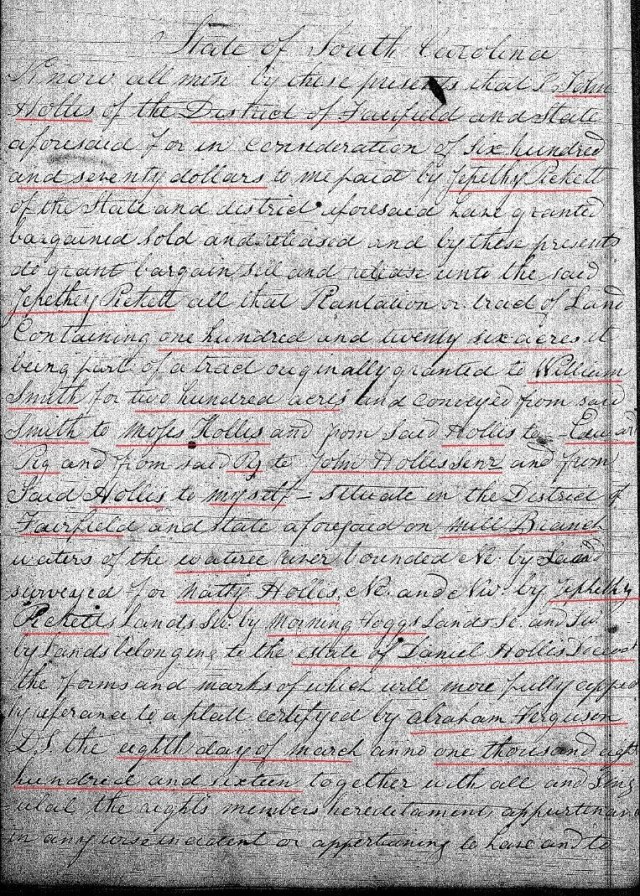 State of South Carolina
Know all men by these presents that I John
Hollis of the District of Fairfield and State
aforesaid for in consideration of six hundred
and seventy dollars to me paid by Jepethy Pickett
of the State and district aforesaid have granted
bargained sold and released and by these presents
do grant bargain sell and release unto the said
Jepethey Pickett all that Plantation or tract of Land
Containing one hundred and twenty six acres it
being part of a tract originally granted to William
Smith for two hundred acres and conveyed from said
Smith to Moses Hollis and from said Hollis to Edward
and from said to John Hollis Senr and from
Said Hollis to myself - situate in the District of
Fairfield and state aforesaid on Mill Branch
waters of the wateree river bounded NE. by Land
surveyed for Natty Hollis, NE. and NW. by Jephethy
Picketts Lands SW. by Morning Hoggs Lands SE. and SW
by Lands belonging to the estate of Daniel Hollis
the forms and marks of which will more fully appear
by referance to a platt certifyed by abraham Ferguson
D.S. the eighth day of march anno one thousand eight
hundred and sixteen together with all and sing
ular the rights members hereditaments appurtenan
in any wise incident or appertaining to have and to